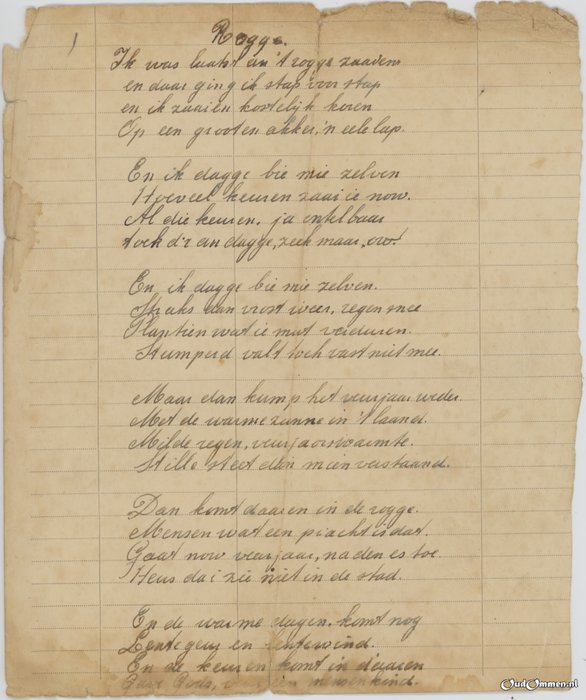 1
Rogge.
Ik was laatst an 't rogge zaaden
en daar ging ik stap voor stap
en ik zaaien kostelijk koren
Op een grooten akker, 'n eele lap.
En ik dagge bie mie zelven
Hoeveel keuren zaai ie now.
Al die keuren, ja ontelbaar
toch d'r an dagge, zeek maar, ow!
En, ik dagge bie mie zelven.
Straks dan vrost weer, regen mee
Plantien wat ie mut verduren.
Stumperd valt toch vast niet mee.
Maar dan kump het veurjaar weder.
Met de warme zunne in 't laand.
Milde regen, veurjaorswarmte.
Stille steet dan mien verstaand.
Dan komt daaren in de rogge.
Mensen wat een pracht is dat.
Gaat now veurjaar, na den es toe
Heus da i zie niet in de stad.
En de warme dagen komt nog
Lentegeur en lentewind.
En de keuren komt in daaren
mensenkind.
OudOmmen.nl